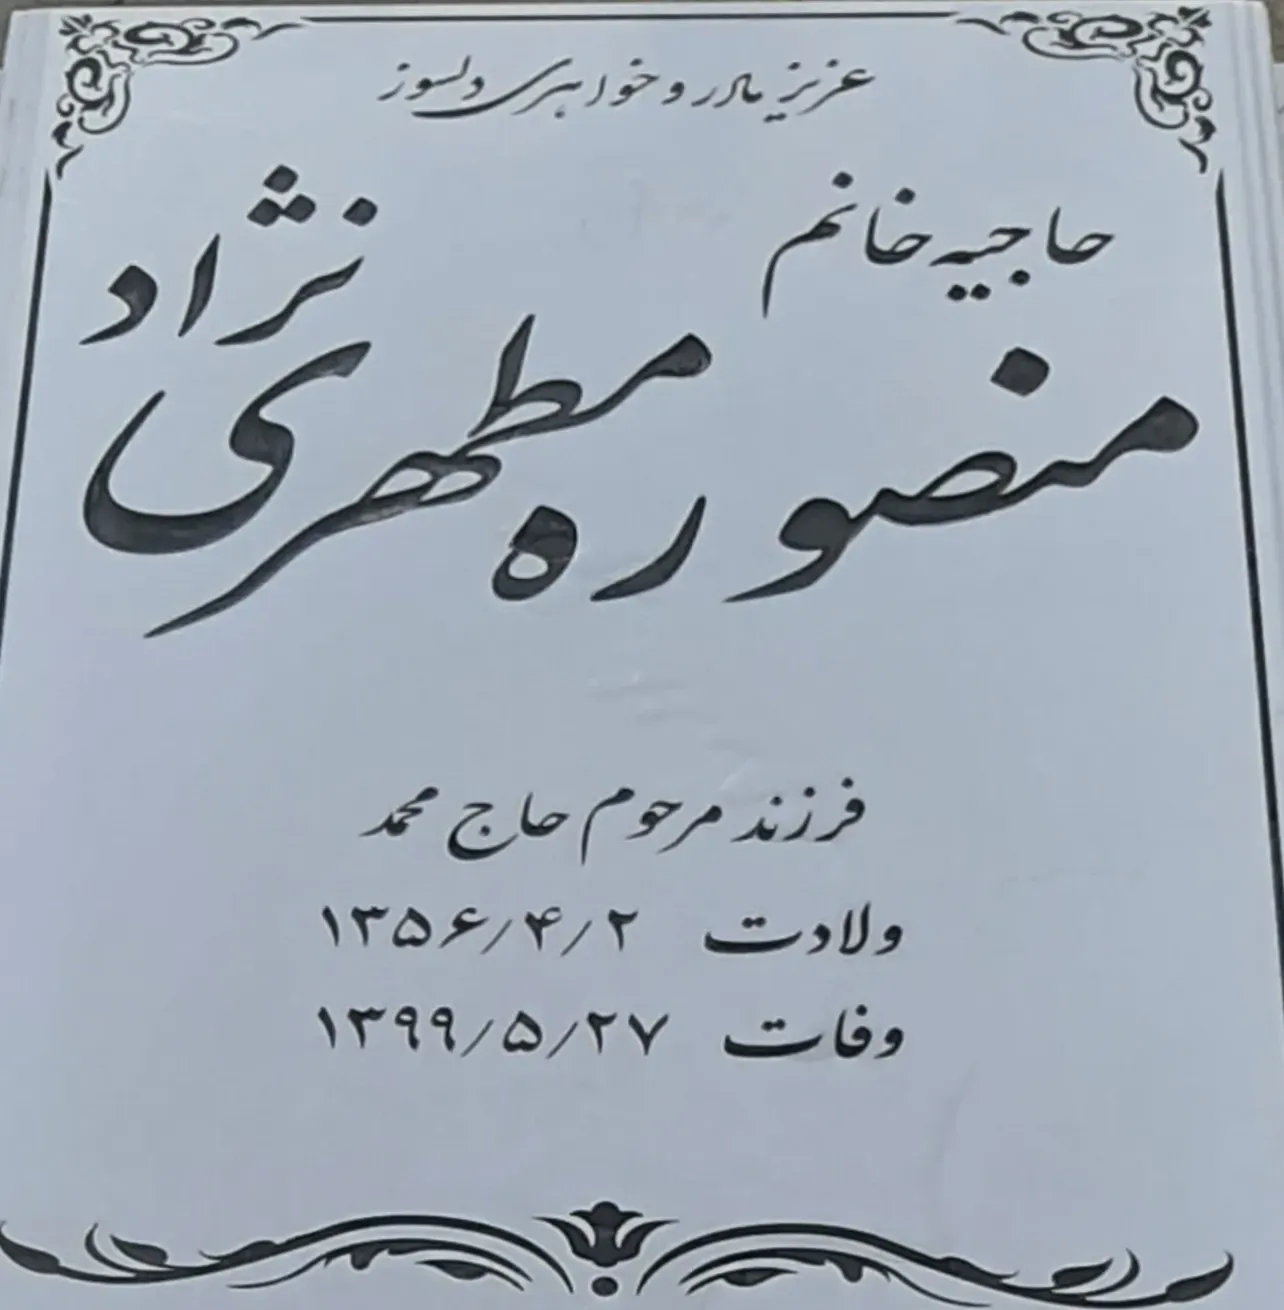 عزیز مادر و خواهری دلسوز
حاجیه خانم
منصوره مطهری نژاد
فرزند مرحوم حاج محمد
ولادت ۱۳۵۶/۴/۲
وفات ۱۳۹۹/۵/۲۷